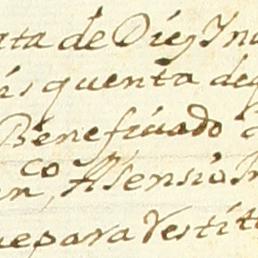 ata de Diez In
is quenta de
Beneficiado
en, co Asensio
uepara Vestit